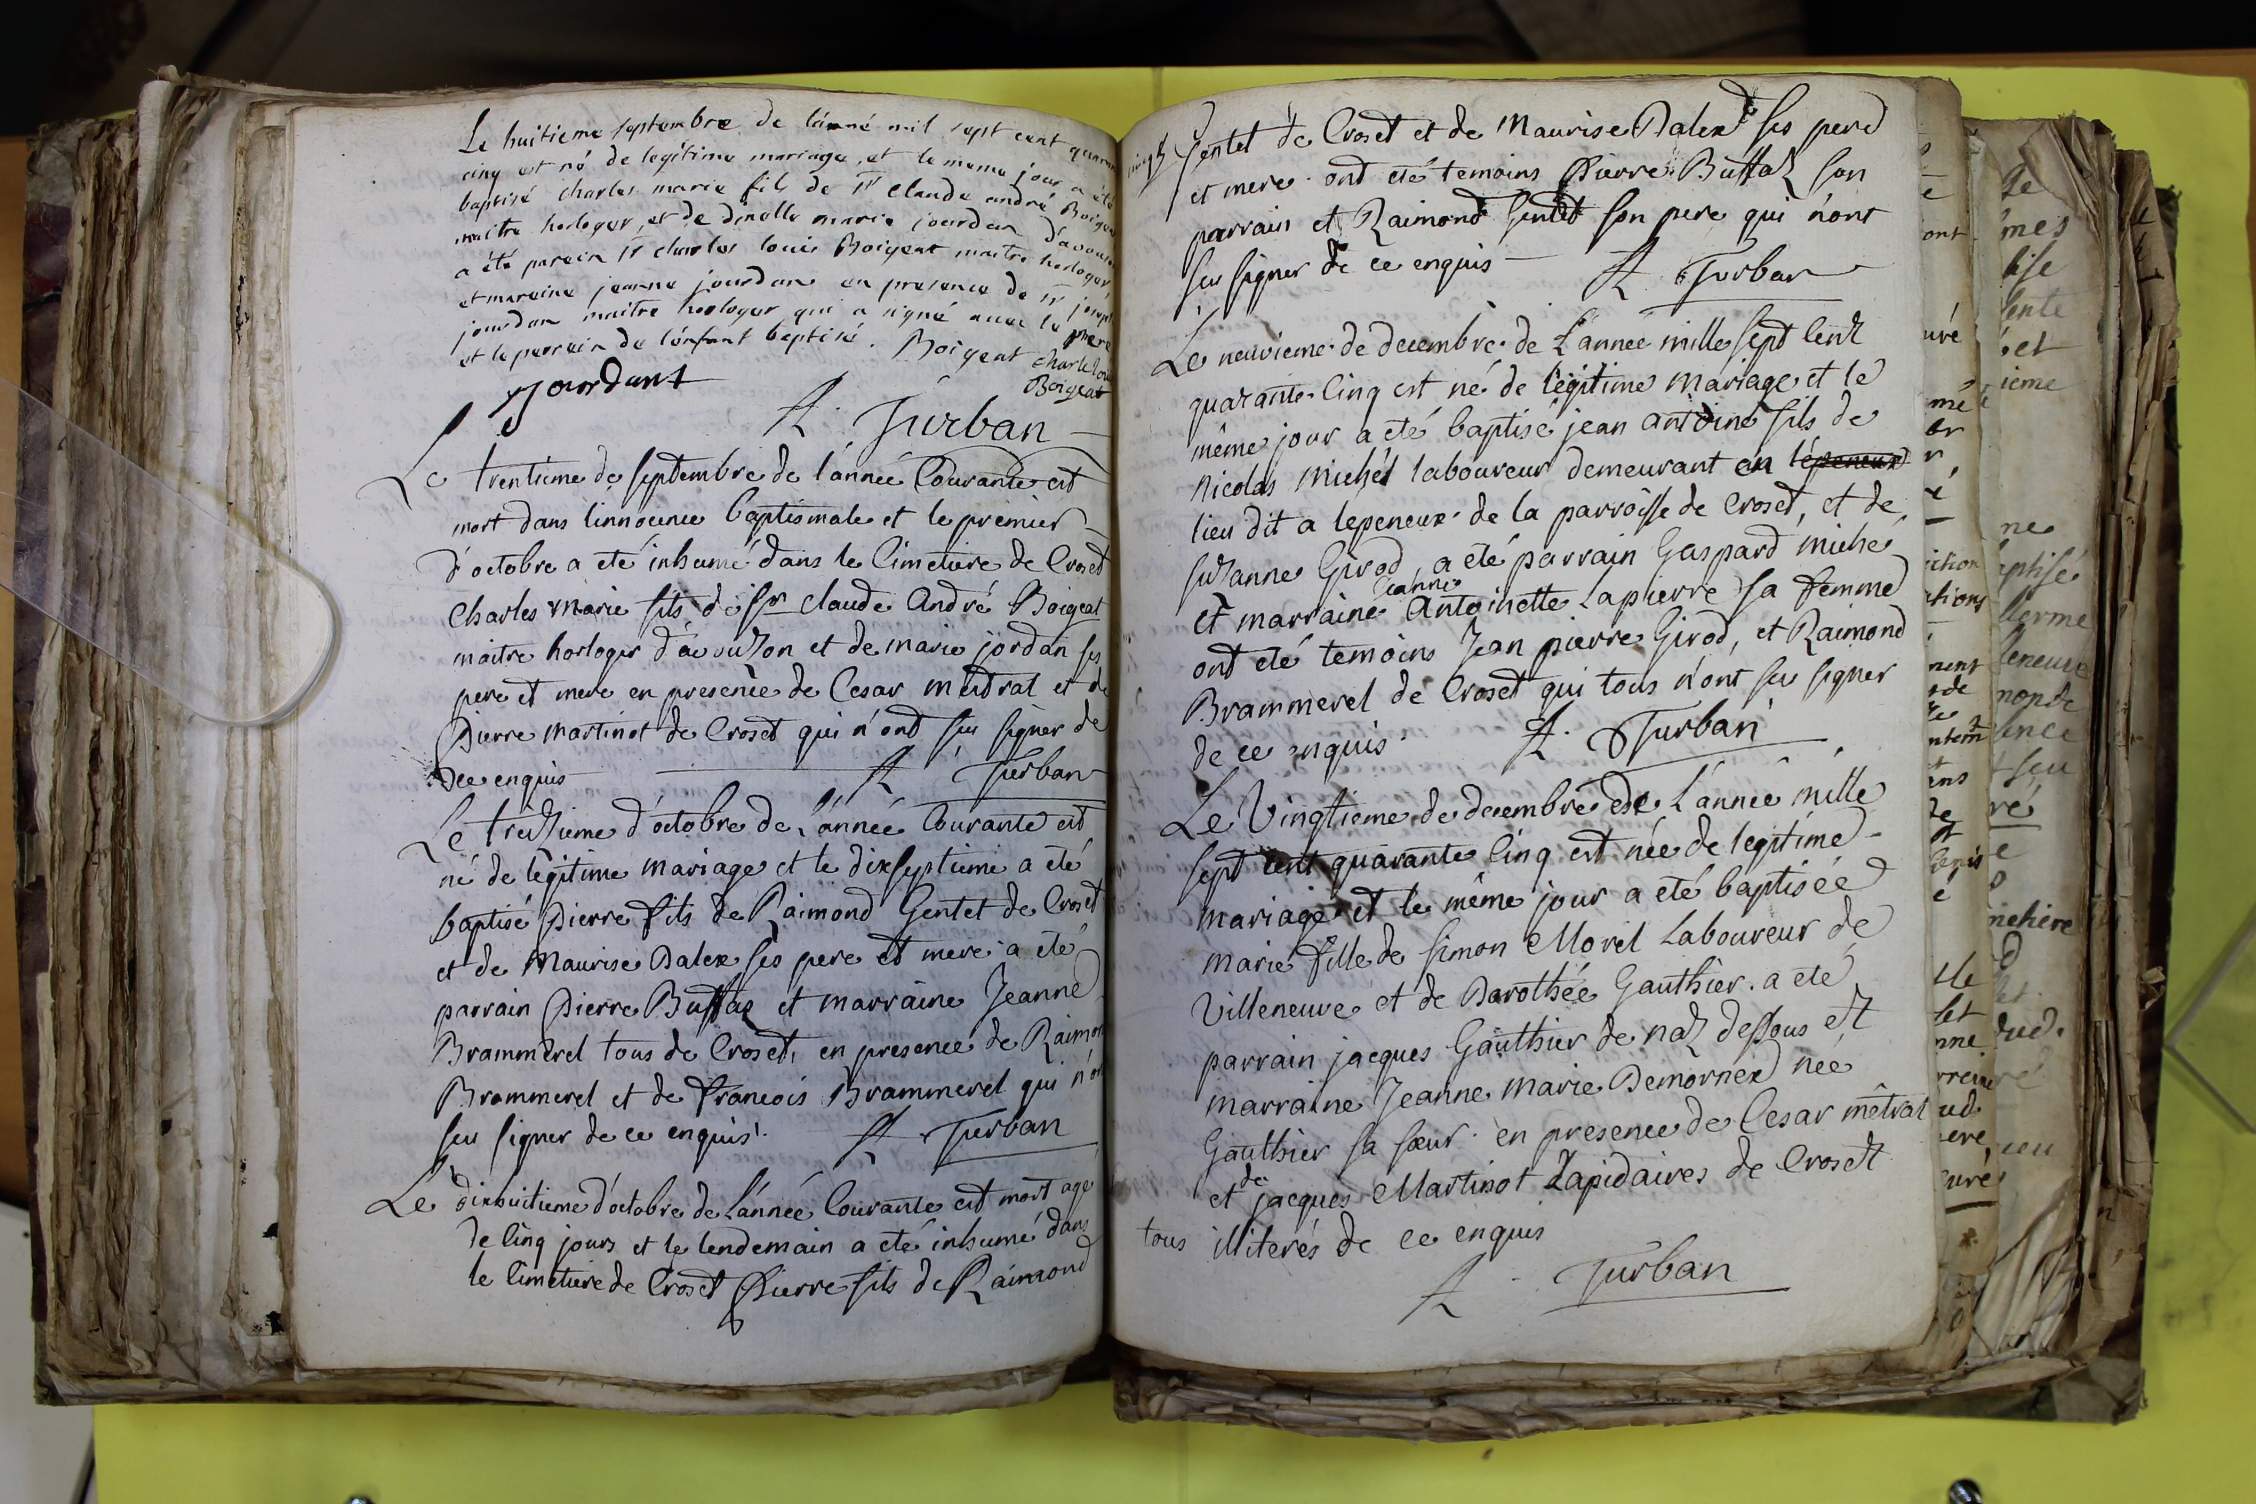 Le huitieme septembre de l'anné mil sept cent
cinq est né de legitime mariage, et le meme jour a été
baptisé charles marie fils de Sr Claude andré
maitre horloger, et de dmelle marie jourdan
a été parein Sr charles louis Boigeat maitre horloger
et mareine jeanne jourdan en presence de Sr joseph
jourdan maitre horloger qui a signé avec le pere
et le parrein de l'enfant baptisé. Boigeat charle loui
Jourdant Boigeat
A. Turban
Le trentieme de septembre de l'année Courante est
mort dans l'innocence baptismale et le premier
d'octobre a eté inhumé dans le Cimetiere de Croset
Charles Marie fils de Sr claude André Boigeat
maitre horloger d'avouzon et de marie jordan ses
pere et mere en presence de Cesar metral et de
Pierre martinot de Croset qui n'ont sçu signer de
ce enquis A Turban
Le treizieme d'octobre de l'année Courante est
né de legitime mariage et le dixseptieme a eté
baptisé Pierre fils de Raimond Gentet de Croset
et de Maurise Dalex ses pere et mere a eté
parrain Pierre Buffaz et marraine Jeanne
Brammerel tous de Croset, en presence de Raimon
Brammerel et de francois Brammerel qui n'on
sçu signer de ce enquis. A Turban
Le dixhuitieme d'octobre de l'année Courante est mort agé
de Cinq jours et le lendemain a eté inhumé dans
le Cimetiere de Croset Pierre fils de Raimond
Gentet de Croset et de Maurise Dalex ses pere
et mere ont eté temoins Pierre Buffaz son
parrain et Raimond Gentet son pere qui n'ont
sçu signer de ce enquis A. Turban
Le neuvieme de decembre de l'année mille sept Cent
quarante Cinq est né de legitime mariage et le
même jour a eté baptisé jean antoine fils de
Nicolas Michel laboureur demeurant en lepeneux
lieu dit a lepeneux de la parroisse de Croset, et de
Suzanne Girod a eté parrain Gaspard miché
Jeanne
et marraine Antoinette Lapierre sa femme
ont eté temoins Jean pierre Girod, et Raimond
Brammerel de Croset qui tous n'ont sçu signer
de ce enquis A. Turban
Le Vingtieme de decembre de l'année mille
sept cent quarante Cinq est née de legitime
mariage et le même jour a eté baptisée
marie fille de Simon Morel Laboureur de
Villeneuve et de Dorothée Gauthier. a eté
parrain jacques Gauthier de naz dessous et
marraine Jeanne Marie Demornex née
Gauthier sa sœur. en presence de Cesar mêtral
et de jacques Martinot Lapidaires de Croset
tous illiterés de ce enquis
A Turban